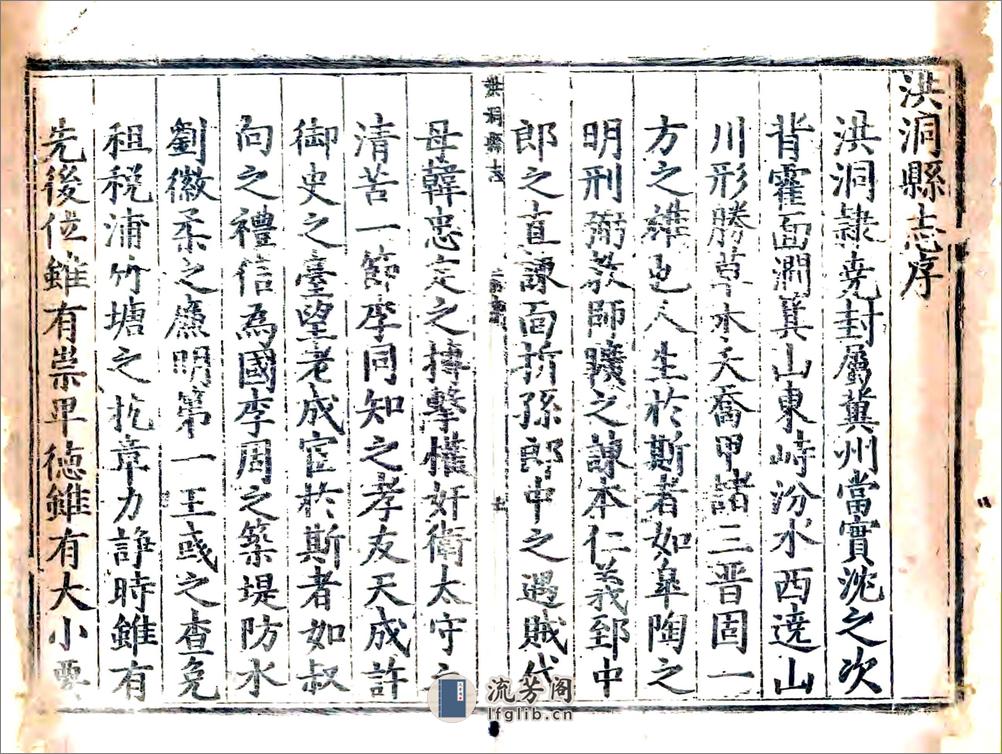 洪洞縣志序
洪洞隷堯封屬冀州當實沈之次
背霍面澗箕山東峙汾水西遶山
川形勝草木夭喬甲諸三晉固一
方之雄也人生於斯者如皐陶之
明刑弼教師曠之諫本仁義郅中
郎之直諫面折孫郎中之遇賊代
母韓忠定之摶擊權奸衛太守之
清苦一節李同知之孝友天成許
御史之臺望老成宦於斯者如叔
向之禮信為國李周之築堤防水
劉徽柔之廉明第一王彧之查免
租稅浦竹塘之抗章力諍時雖有
先後位雖有崇卑德雖有大小要
洪洞縣志
流芳阁
lfglib.cn